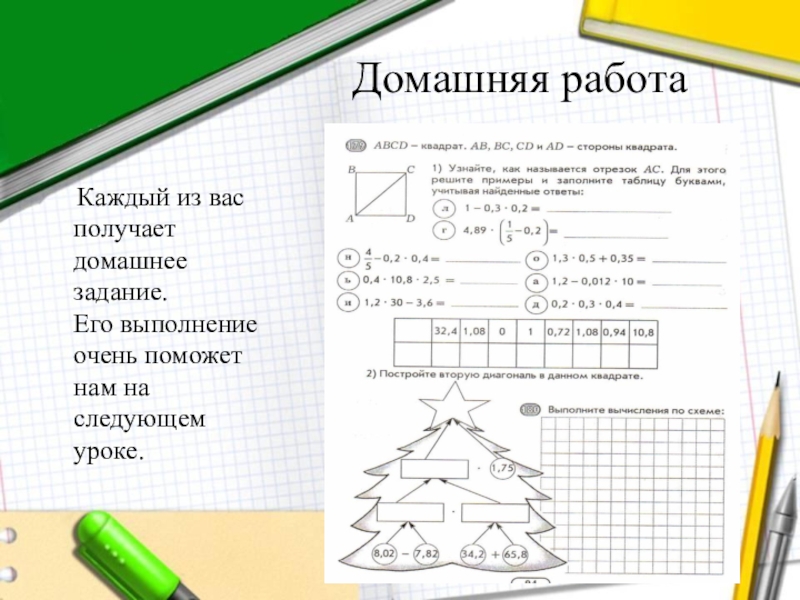 Домашняя работа
Каждый из вас
получает
домашнее
задание.
Его выполнение
очень поможет
нам на
следующем
уроке.
ABCD – квадрат. AB, BC, CD и AD – стороны квадрата.
B C
A D
1) Узнайте, как называется отрезок AC. Для этого
решите примеры и заполните таблицу буквами,
учитывая найденные ответы:
л 1 – 0,3 · 0,2 =
г 4,89 · (1/5 – 0,2) =
н 4/5 – 0,2 · 0,4 = о 1,3 · 0,5 + 0,35 =
ь 0,4 · 10,8 · 2,5 = а 1,2 – 0,012 · 10 =
и 1,2 · 30 – 3,6 = д 0,2 · 0,3 · 0,4 =
32,4 1,08 0 1 0,72 1,08 0,94 10,8
2) Постройте вторую диагональ в данном квадрате.
Выполните вычисления по схеме:
· 1,75
·
8,02 – 7,82 34,2 + 65,8